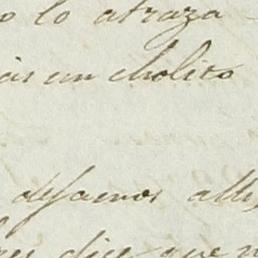 o lo atraza
ás un cholito
dejamos alli
dice que